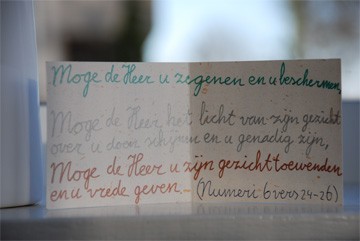 Moge de Heer u zegenen en u beschermen,
Moge de Heer het licht van zijn gezicht
over u doen schijnen en u genadig zijn,
Moge de Heer u zijn gezicht toewenden
en u vrede geven.- (Numeri: 6 vers 24-26)